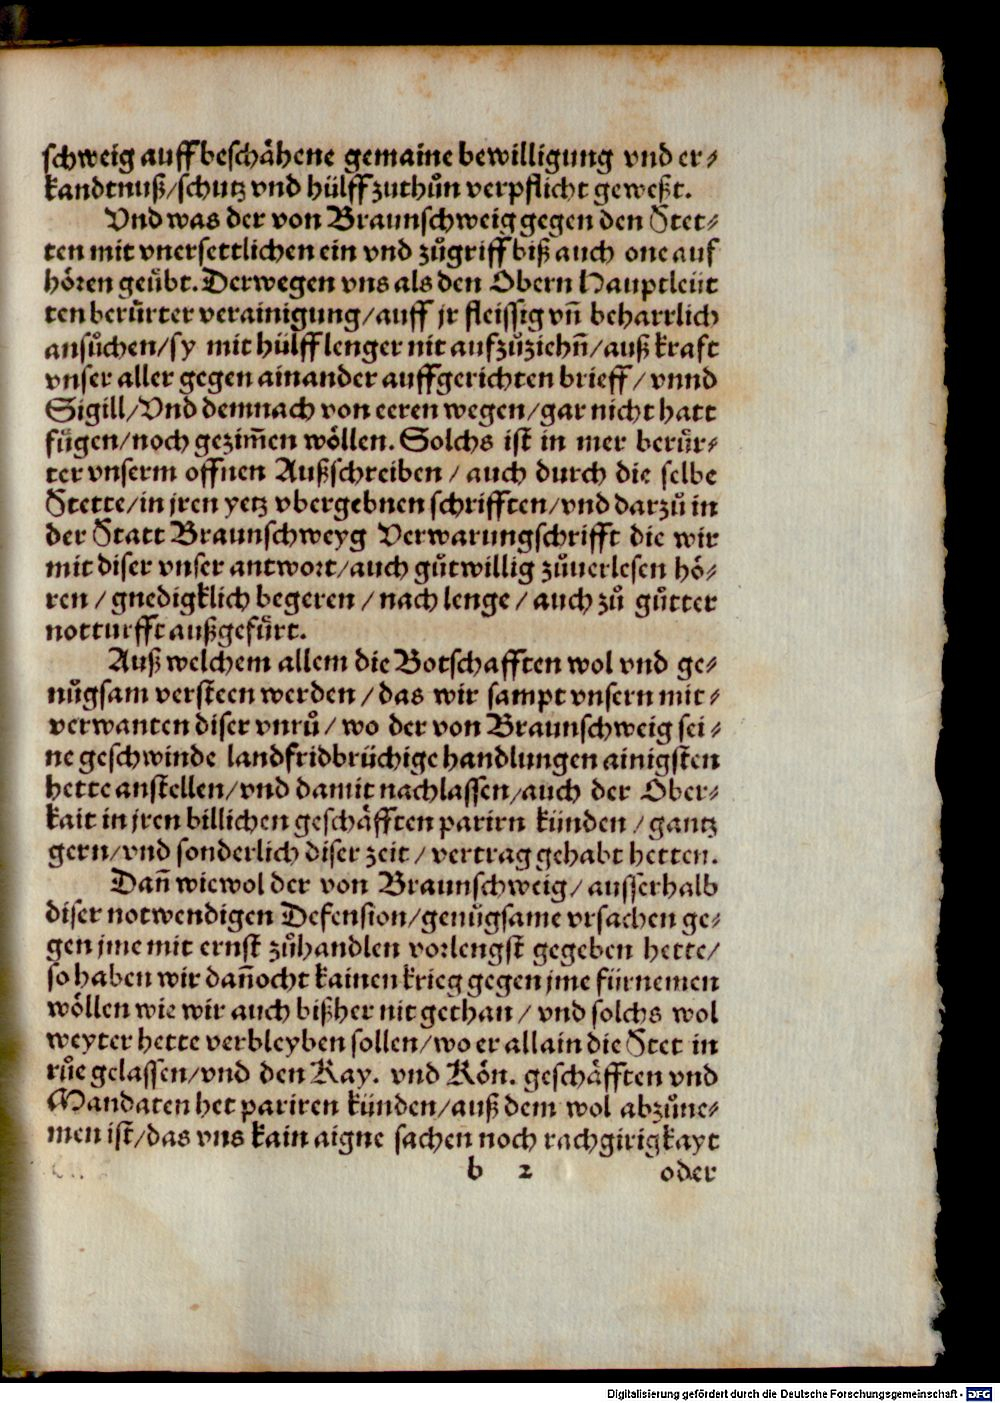 schweig auff beschåhene gemaine bewilligung vnd er⸗
kandtnuß/schutz vnd hülff zuthůn verpflicht geweßt.
Vnd was der von Braunschweig gegen den Stet⸗
ten mit vnersettlichen ein vnd zůgriff biß auch one auf
hören geübt. Derwegen vns als den Obern Hauptleüt
ten berürter verainigung/auff jr fleissig vn̄ beharrlich
ansůchen/sy mit hülff lenger nit aufzůziehn̄/auß kraft
vnser aller gegen ainander auffgerichten brieff/vnnd
Sigill/Vnd demnach von eeren wegen/gar nicht hatt
fügen/noch gezim̄en wöllen. Solchs ist in mer berür⸗
ter vnserm offnen Außschreiben/auch durch die selbe
Stette/in jren yetz vbergebnen schrifften/vnd darzů in
der Statt Braunschweyg Verwarungschrifft die wir
mit diser vnser antwort/auch gůtwillig zůuerlesen hö⸗
ren/gnedigklich begeren/nach lenge/auch zů gůtter
notturfft außgefürt.
Auß welchem allem die Botschafften wol vnd ge⸗
nůgsam versteen werden/das wir sampt vnsern mit⸗
verwanten diser vnrů/wo der von Braunschweig sei⸗
ne geschwinde landfridbrüchige handlungen ainigsten
hette anstellen/vnd damit nachlassen/auch der Ober⸗
kait in jren billichen geschäfften parirn künden/gantz
gern/vnd sonderlich diser zeit/vertrag gehabt hetten.
Dan̄ wiewol der von Braunschweig/ausserhalb
diser notwendigen Defension/genůgsame vrsachen ge⸗
gen jme mit ernst zůhandlen vorlengst gegeben hette/
so haben wir dan̄ocht kainen krieg gegen jme fürnemen
wöllen wie wir auch bißher nit gethan/vnd solchs wol
weyter hette verbleyben sollen/wo er allain die Stet in
růe gelassen/vnd den Kay. vnd Kön. geschäfften vnd
Mandaten het pariren künden/auß dem wol abzůne⸗
men ist/das vns kain aigne sachen noch rachgirigkayt
b 2 oder
Digitalisierung gefördert durch die Deutsche Forschungsgemeinschaft - DFG